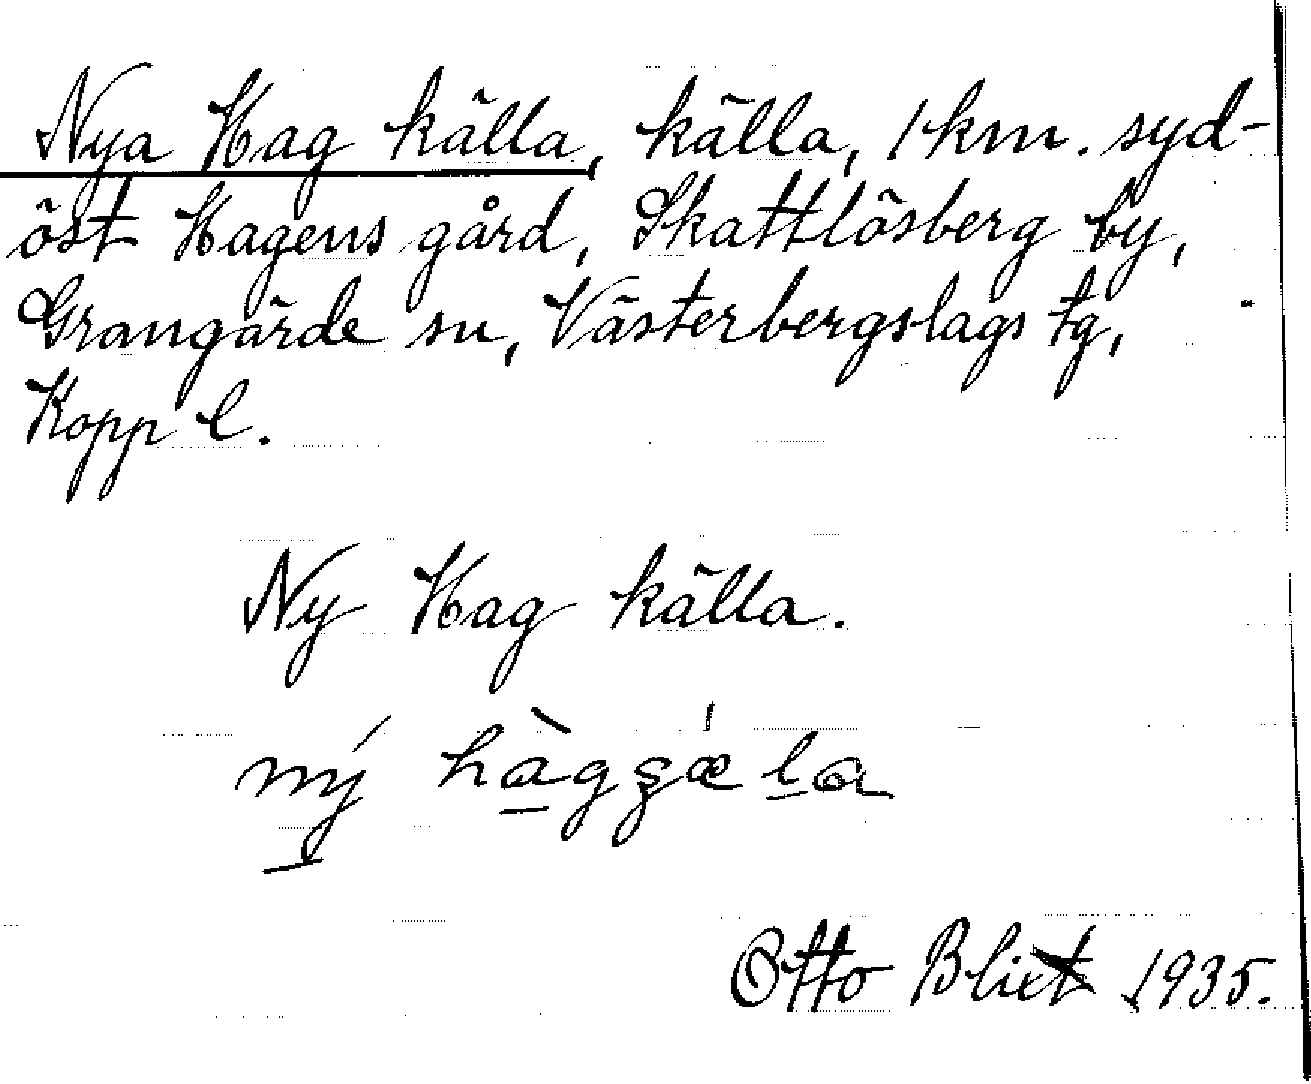 Nya Hag källa, källa, 1 km. syd-
öst Hagens gård, Skattlösberg by,
Grangärde sn, Västerbergslags tg,
Kopp l.
Ny Hag källa.
ný hàg
Otto Blixt 1935.